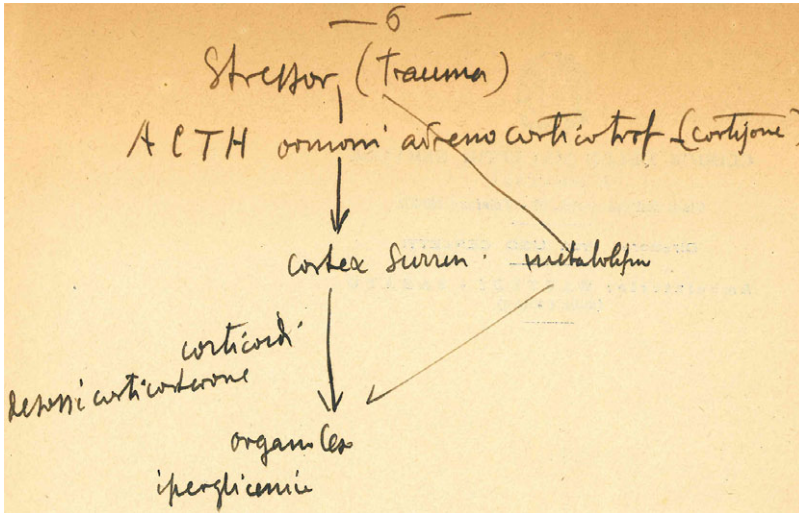 — 6 —
Stressor (trauma)
ACTH ormoni adrenocorticotrof - (cortisone)
cortex surren. metabolism
corticoidi
desossicorticosterone
organi
iperglicemia